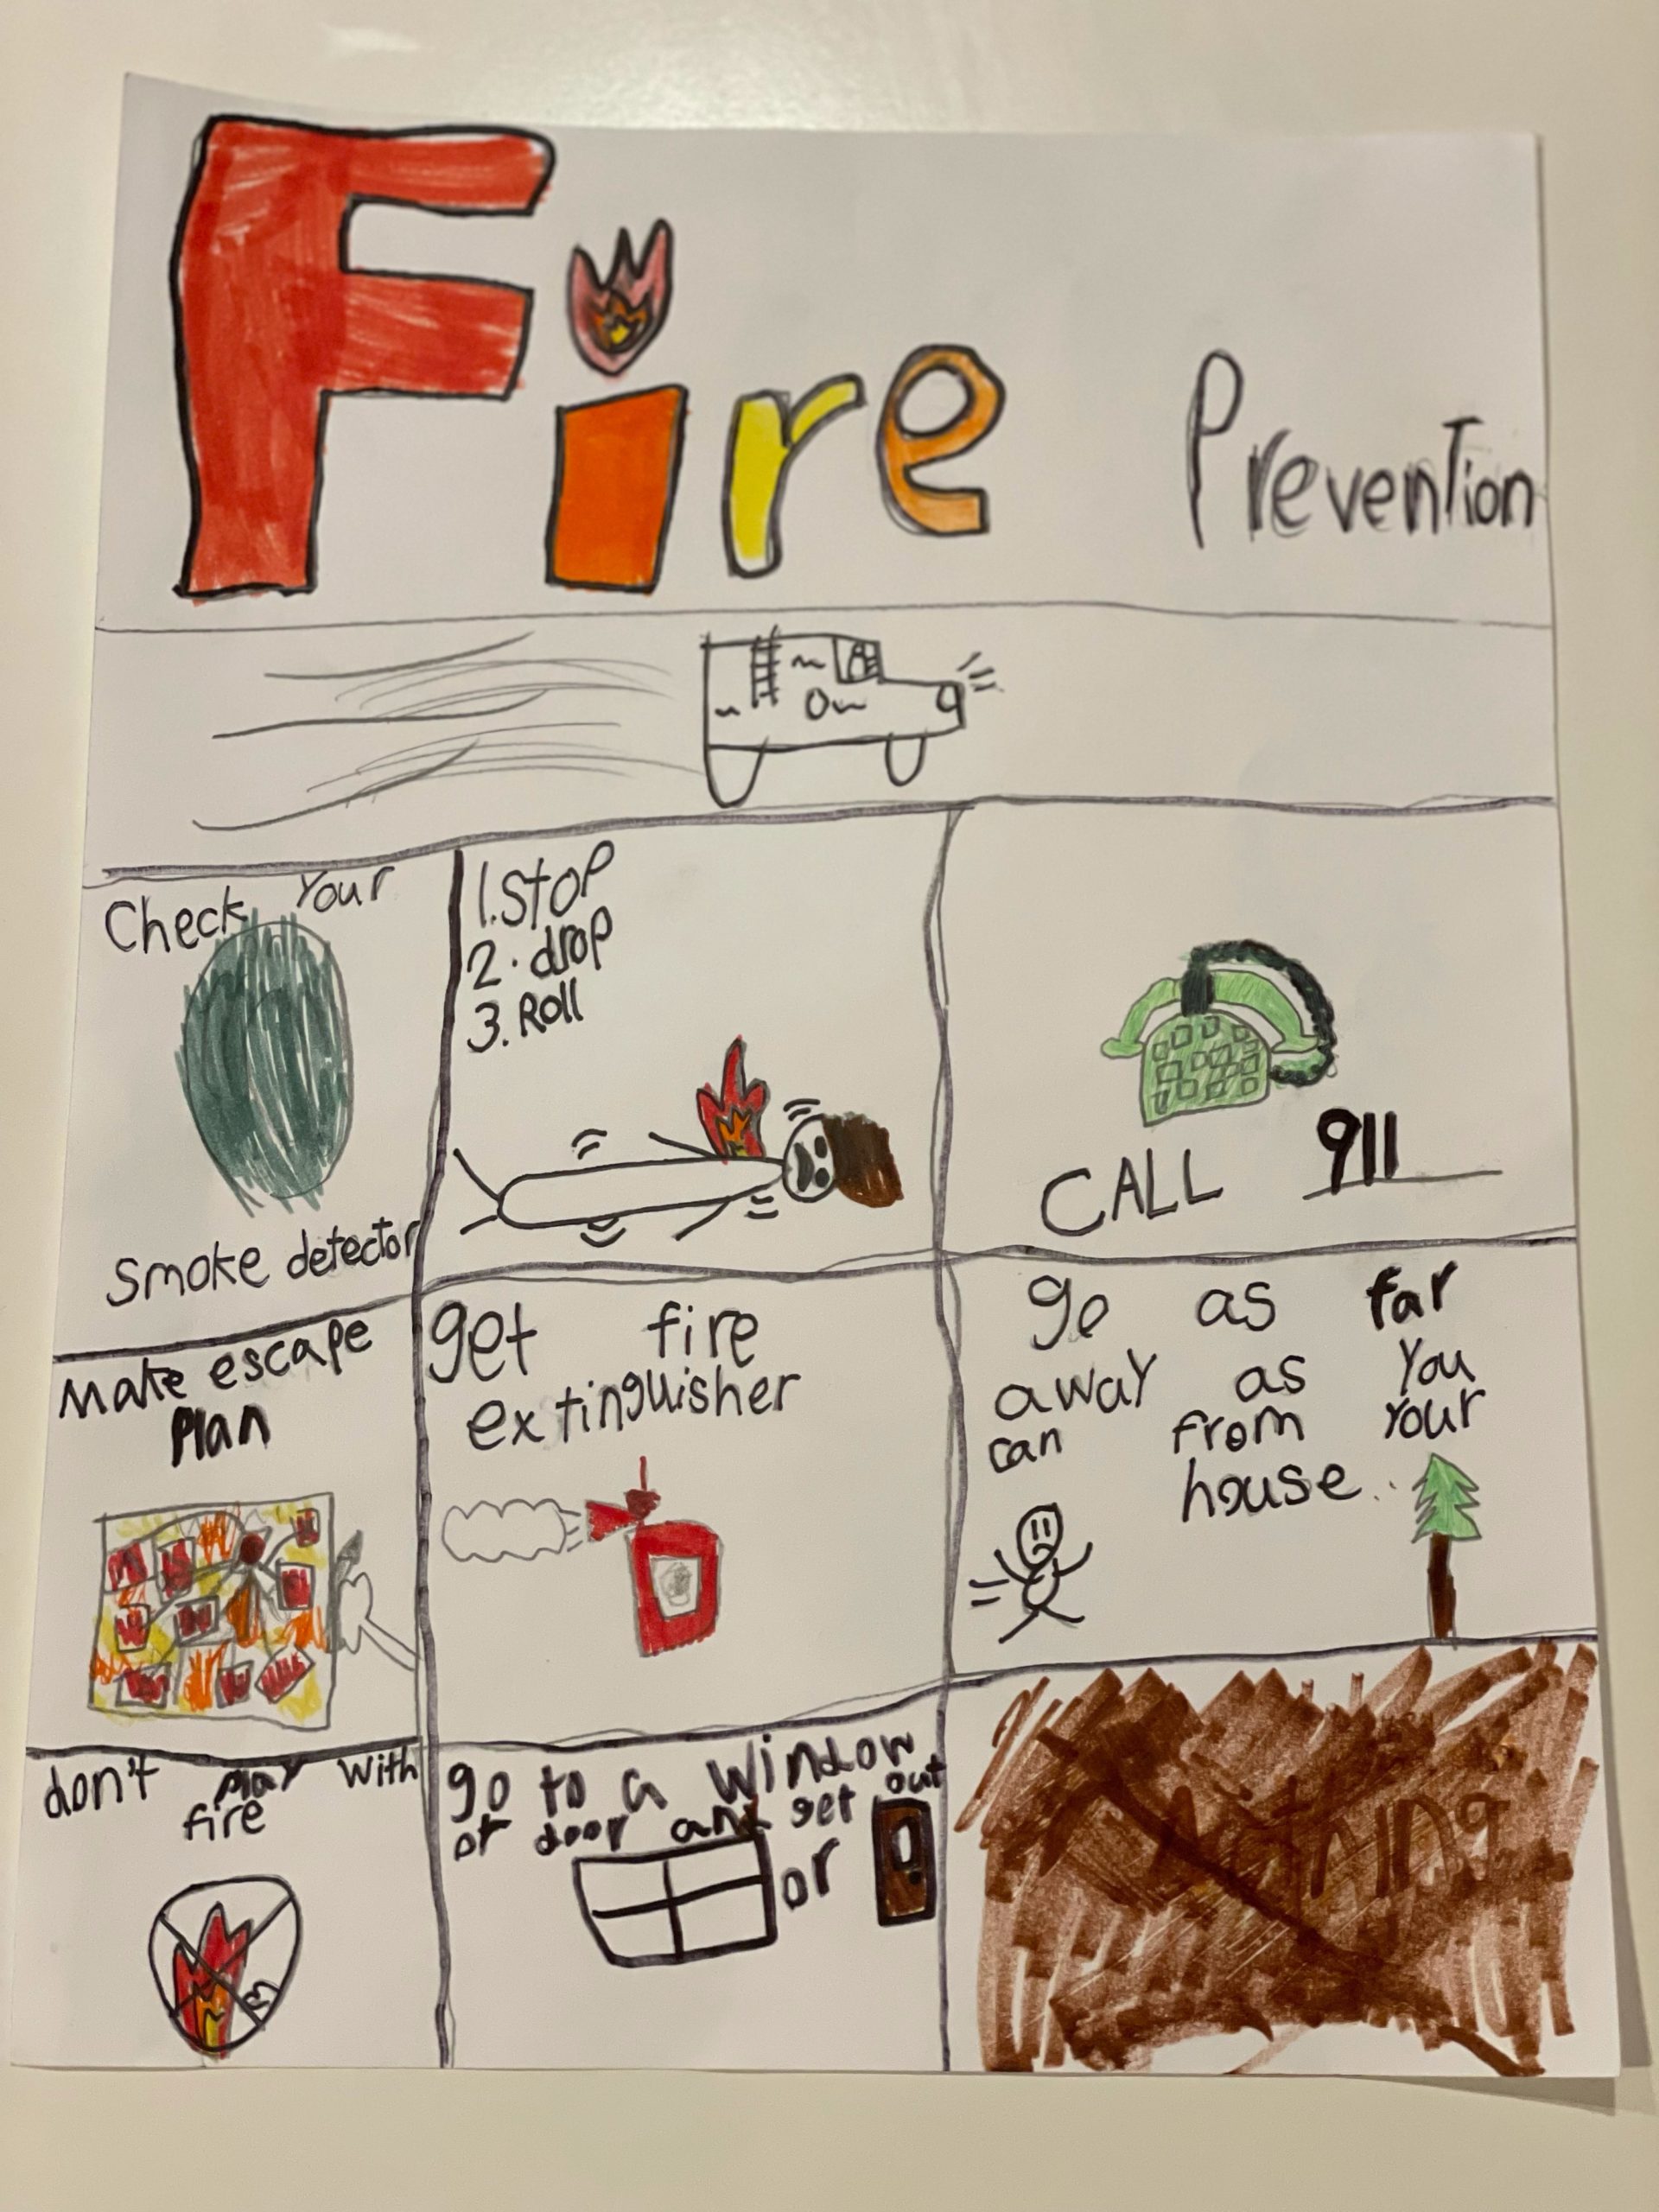 Fire Prevention
Check Your
Smoke detector
1. Stop
2. drop
3. Roll
CALL 911
Make escape
Plan
get fire
extinguisher
go as far
away as You
can from Your
house..
don't play with
fire
go to a window
or door and get out
or